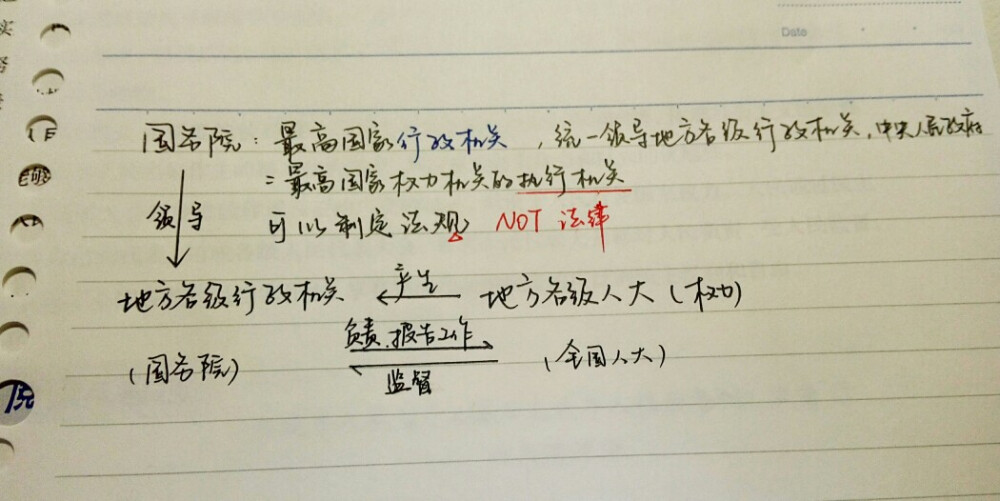 Date
国务院：最高国家行政机关，统一领导地方各级行政机关，中央人民政府
=最高国家权力机关的执行机关
领导
可以制定法规 NOT 法律
地方各级行政机关 产生 地方各级人大（权力）
负责、报告工作
（国务院） （全国人大）
监督